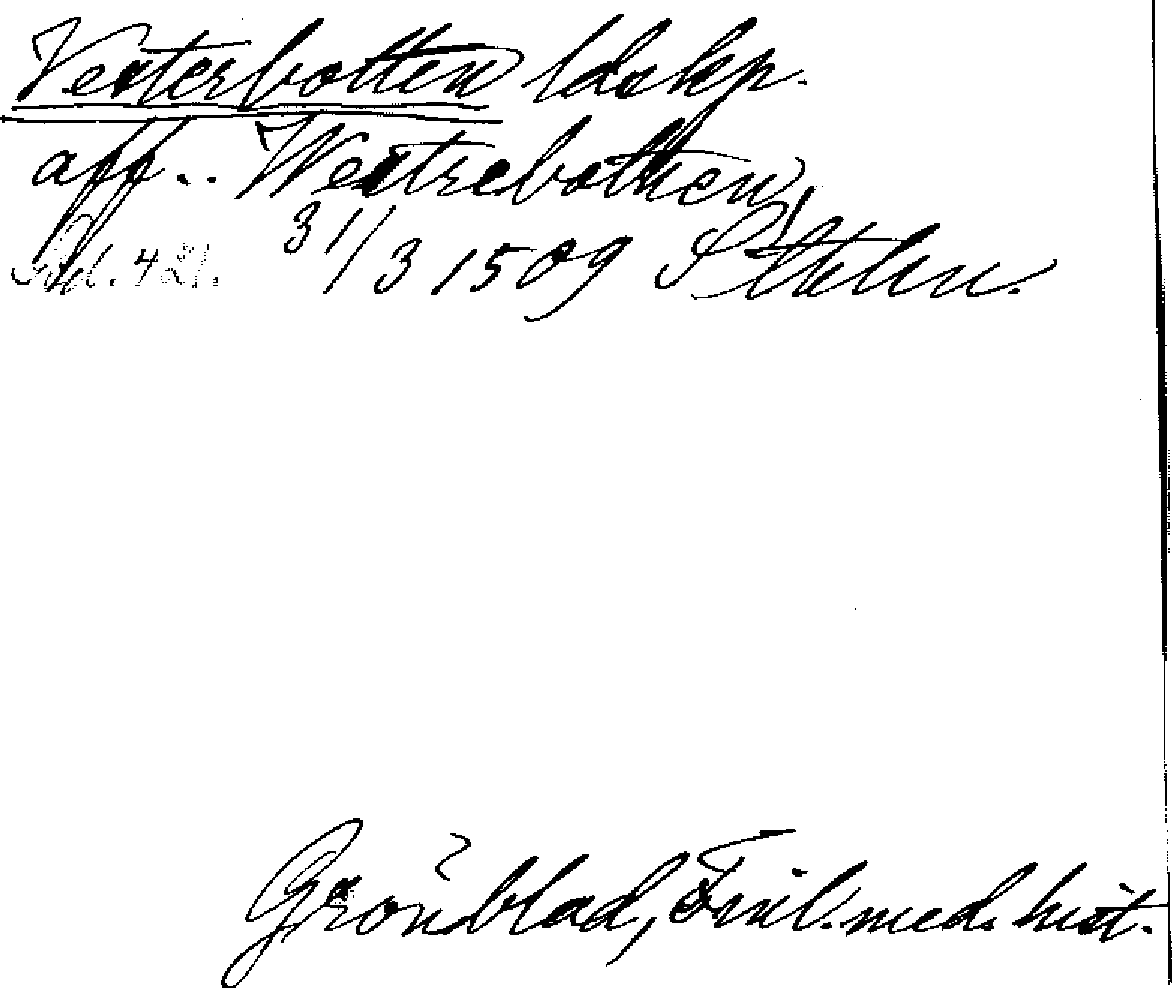 Vesterbotten ldskp.
aff.. Westrebothen
31/3 1509 Sthlm.
Grönblad, Finl. med. hist.